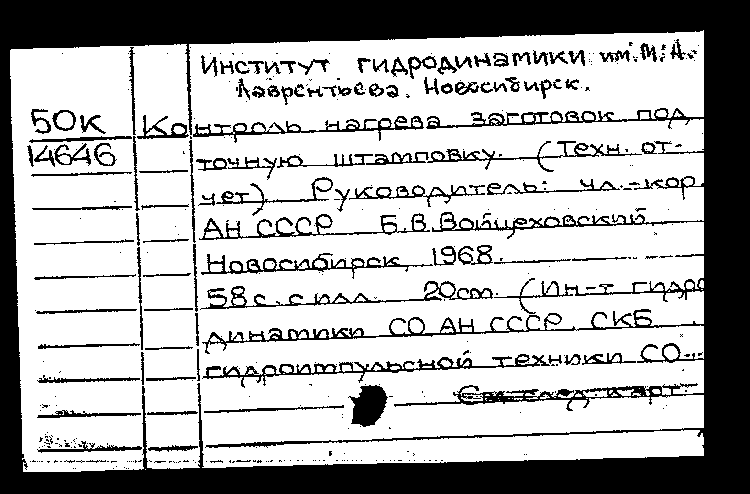 Институт гидродинамики им. М.А.
Лаврентьева. Новосибирск.
50к Контроль нагрева заготовок под
14646 точную штамповку. (Техн. от-
чет). Руководитель: чл.-кор.
АН СССР Б.В. Войцеховский.
Новосибирск, 1968.
58 с. с илл. 20 cm. (Ин-т гидро
динамики СО АН СССР. СКБ
гидроимпульсной техники СО...
См. след. карт.